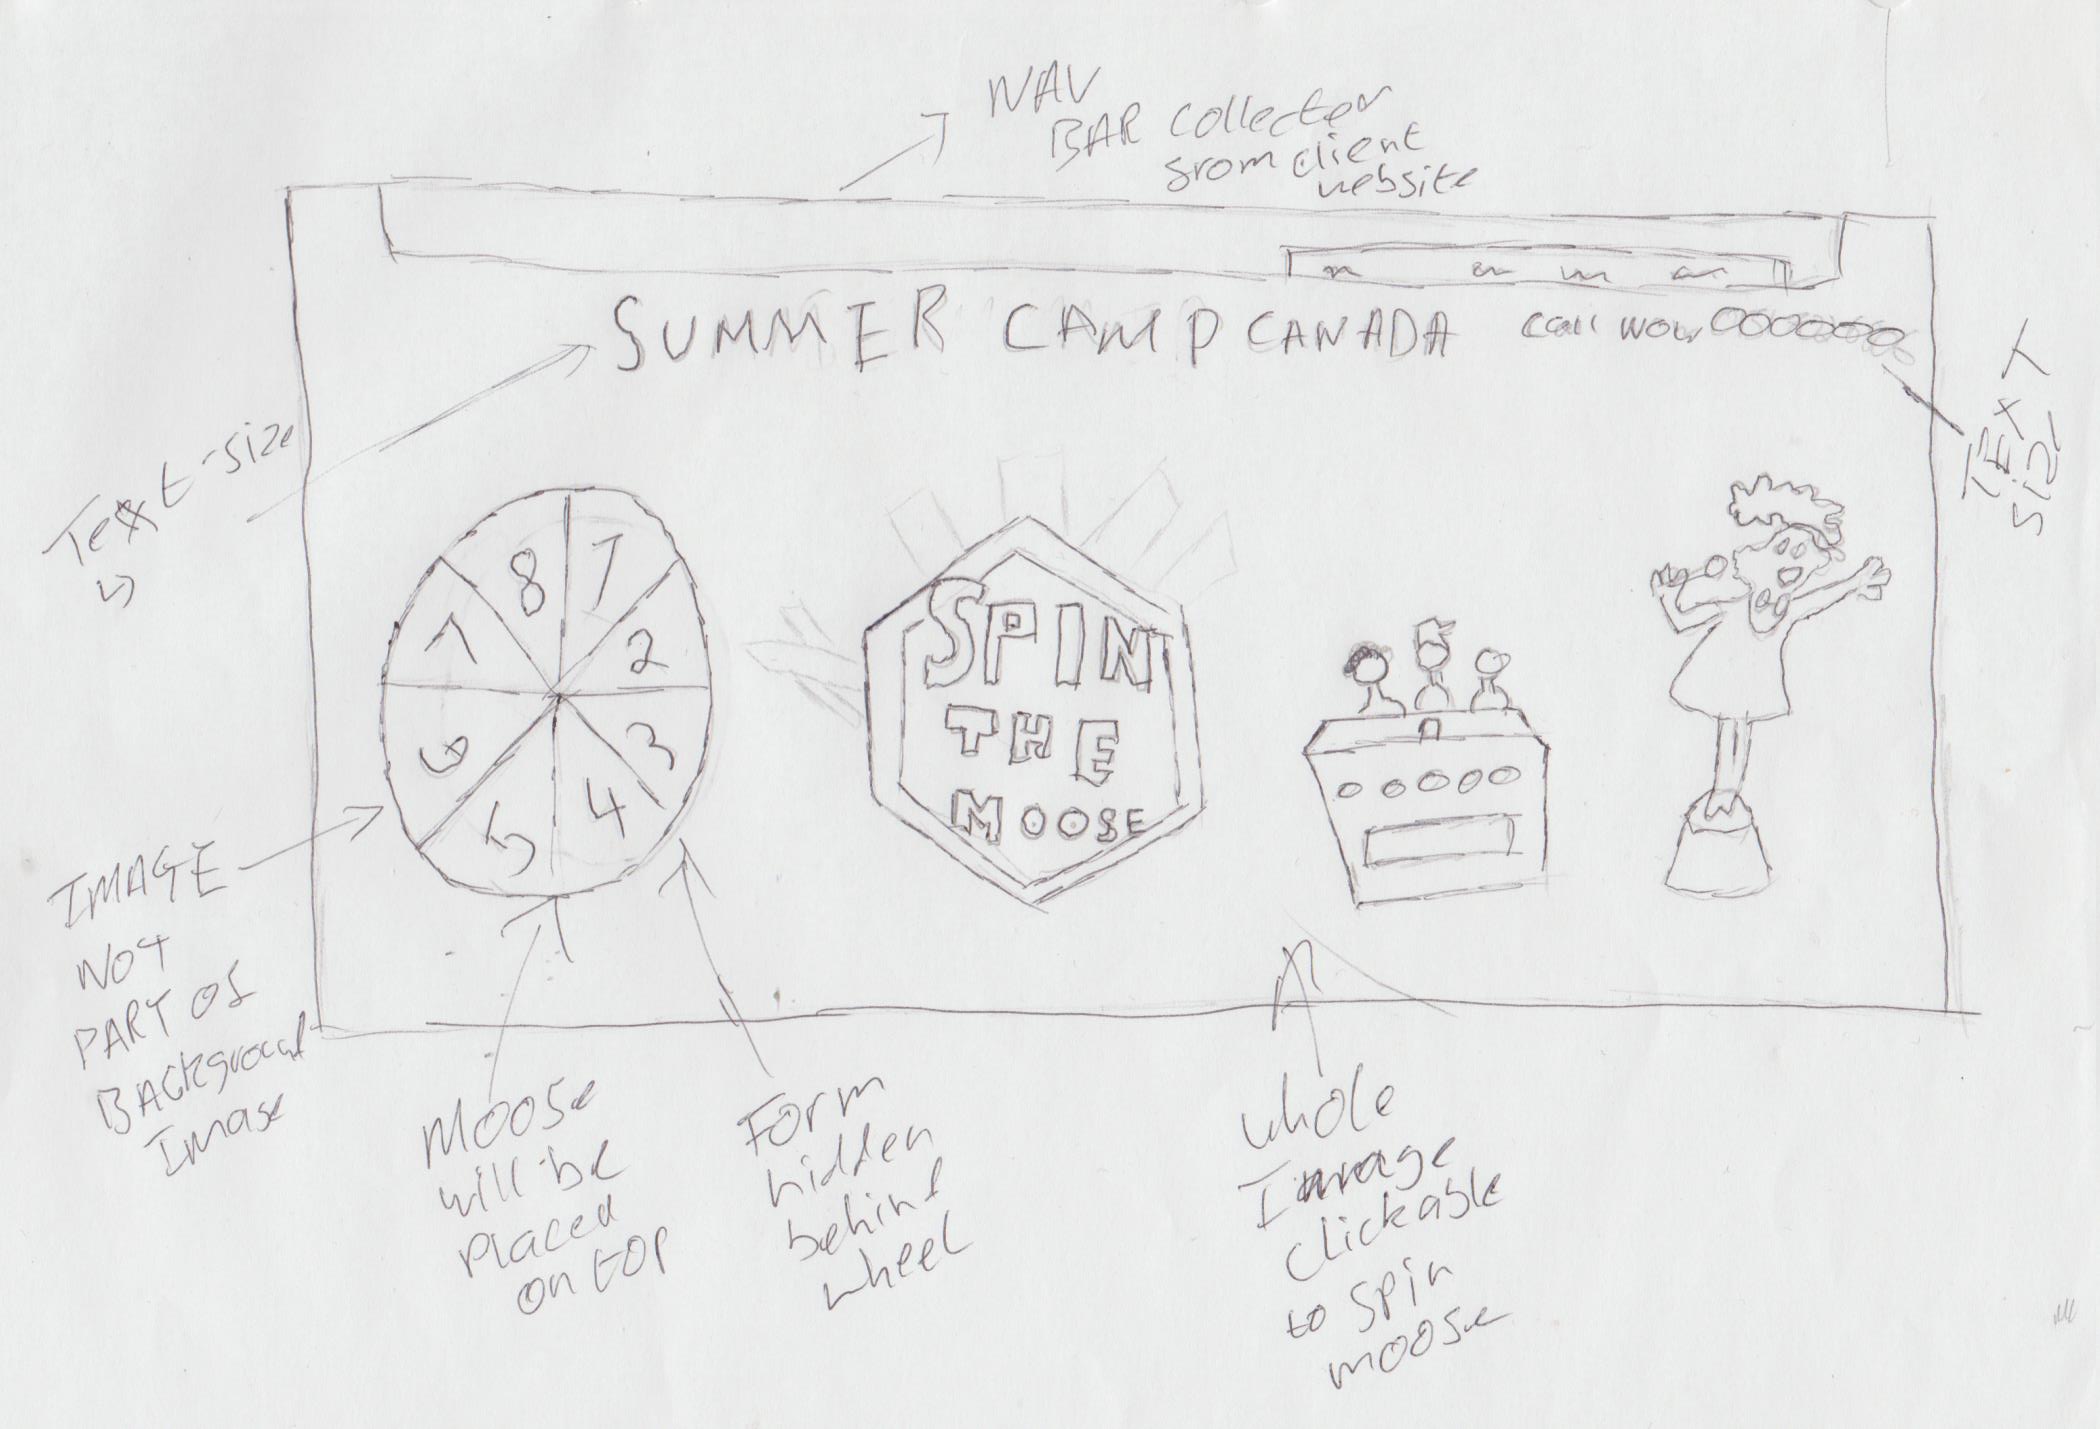 NAV
BAR collector
from client
website
SUMMER CAMP CANADA
call now 000000
Text-size
TEXT
size
8 1
7 2
6 3
5 4
SPIN
THE
MOOSE
IMAGE
NOT
PART OF
BACKground
Image
Moose
will be
placed
on top
Form
hidden
behind
wheel
whole
Image
clickable
to spin
moose